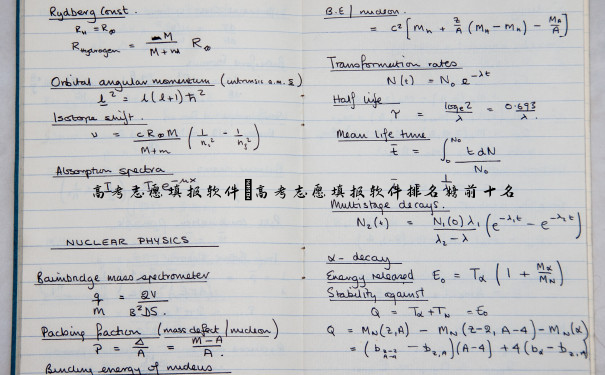 Rydberg Const.
R_H = R_∞
R_Hydrogen = M/(M+m) R_∞
Orbital angular momentum (intrinsic a.m. s)
l² = l(l+1)ħ²
Isotope shift.
ν = cR_∞M/(M+m) (1/n_i² - 1/n_j²)
Absorption spectra
NUCLEAR PHYSICS
Bainbridge mass spectrometer
q/m = 2V/B²DS.
Packing fraction (mass defect/nucleon)
P = Δ/A = (M-A)/A.
Binding energy of nucleus
B.E/nucleon.
= c² [M_n + Z/A (M_H - M_n) - M_A/A]
Transformation rates
N(t) = N₀ e^(-λt)
Half life
τ = log_e 2/λ = 0.693/λ.
Mean life time
t̄ = ∫₀^(N₀) t dN/N₀
高考志愿填报软件 高考志愿填报软件排名榜前十名
Multistage decays.
N₂(t) = N₁(0)λ₁/(λ₂-λ) (e^(-λ₁t) - e^(-λ₂t))
α- decay
Energy released E₀ = T_α (1 + M_α/M_N)
Stability against
Q = T_α + T_N = E₀
Q = M_N(Z,A) - M_N(Z-2, A-4) - M_N(α)
= (b_(Z-2,A-4) - b_(Z,A))(A-4) + 4(b_α - b_(Z,A))